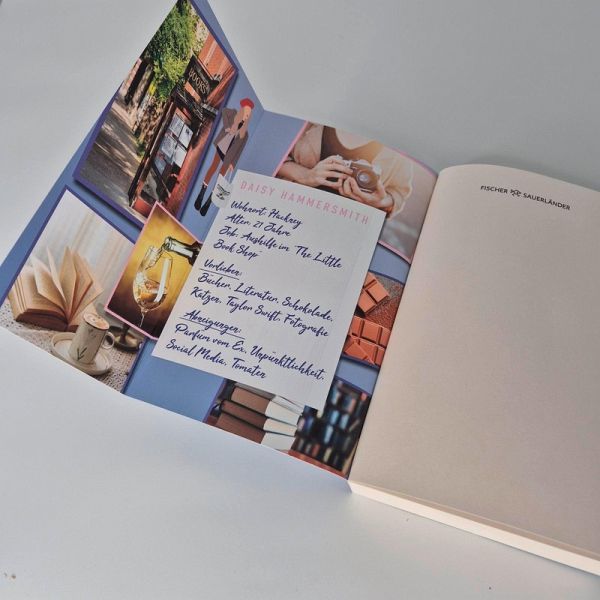 BOOKS
DAISY HAMMERSMITH
Wohnort: Hackney
Alter: 21 Jahre
Job: Aushilfe im "The Little
Book Shop"
Vorlieben:
Bücher, Literatur, Schokolade,
Katzen, Taylor Swift, Fotografie
Abneigungen:
Parfum vom Ex, Unpünktlichkeit,
Social Media, Tomaten
FISCHER SAUERLÄNDER